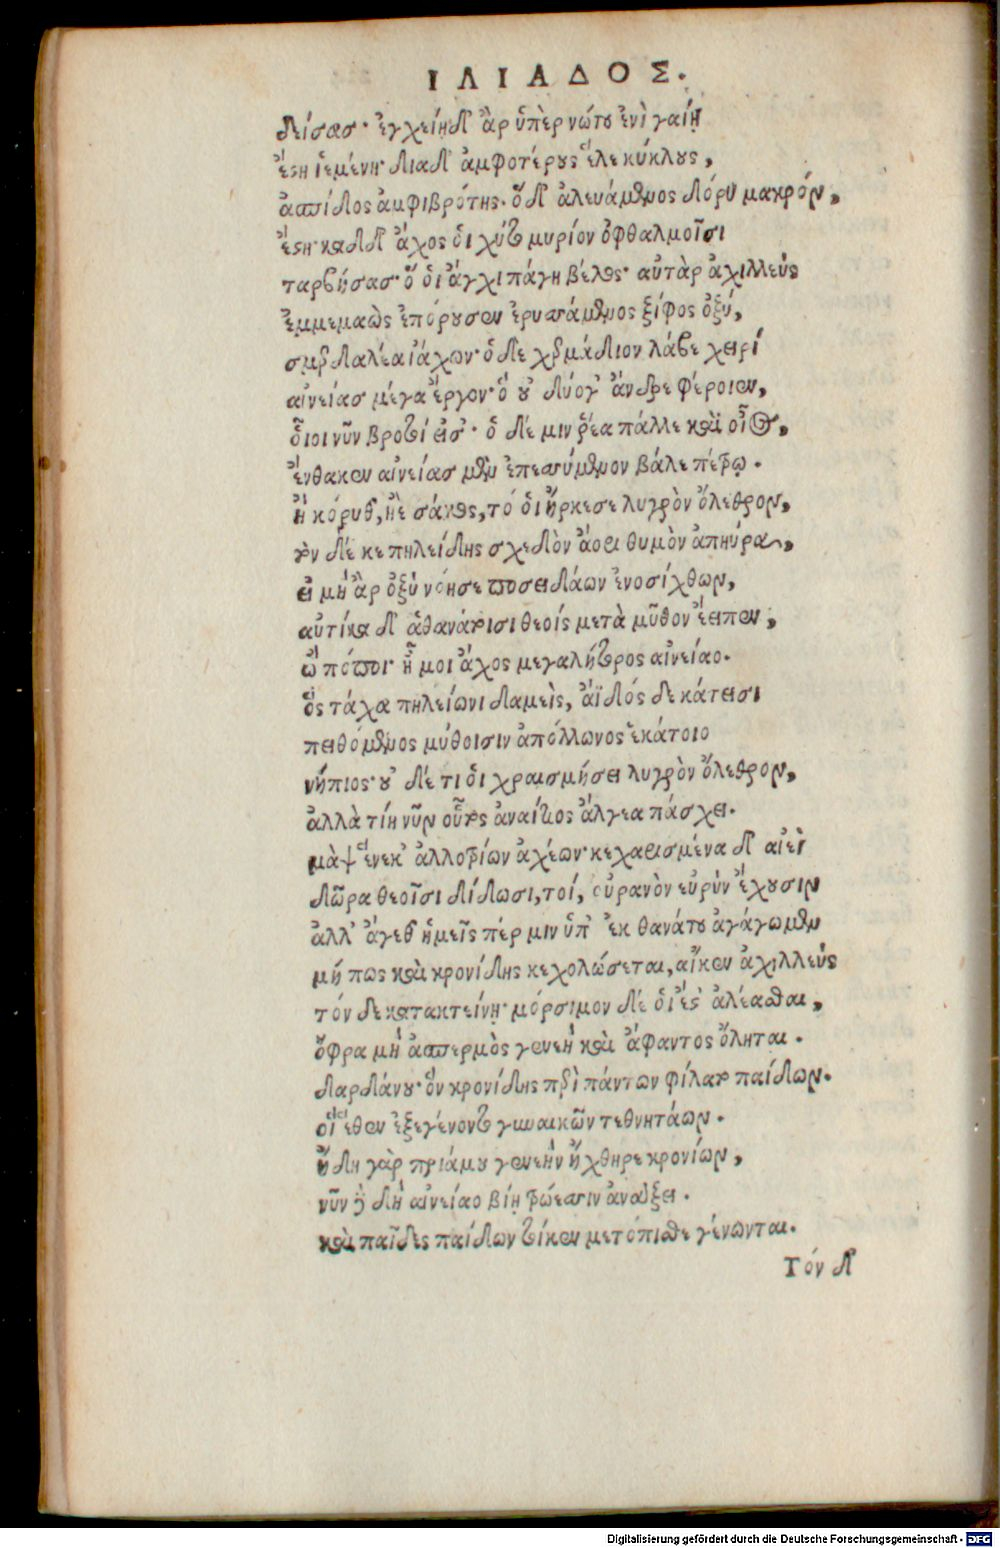 ΙΛΙΑΔΟΣ.
δείσας· ἐγχείη δ' ἂρ ὑπὲρ νώτου ἐνὶ γαίῃ
ἔστη ἱεμένη· διὰ δ' ἀμφοτέρους ἕλε κύκλους,
ἀσπίδος ἀμφιβρότης· ὅ δ' ἀλευάμενος δόρυ μακρόν,
ἔστη· καδ δ' ἄχος ὁι χύτο μυρίον ὀφθαλμοῖσι
ταρβήσας· ὅ ὁι ἄγχι πάγη βέλος· αὐτὰρ ἀχιλλεὺς
ἐμμεμαὼς ἐπόρουσεν ἐρυσσάμενος ξίφος ὀξύ,
σμερδαλέα ἰάχων· ὁ δε χερμάδιον λάβε χειρί
αἰνείας μέγα ἔργον· ὅ οὐ δύο γ' ἄνδρε φέροιεν,
ὁῖοι νῦν βροτοί εἰσ'· ὁ δέ μιν ῥέα πάλλε καὶ οἶος,
ἔνθα κεν αἰνείας μὲν ἐπεσσύμενον βάλε πέτρῳ.
ἢ κόρυθ', ἠὲ σάκος, τό ὁι ἤρκεσε λυγρὸν ὄλεθρον,
τὸν δέ κε πηλείδης σχεδὸν ἄορι θυμὸν ἀπηύρα,
εἰ μὴ ἂρ ὀξὺ νόησε ποσειδάων ἐνοσίχθων,
αὐτίκα δ' ἀθανάτοισι θεοίς μετὰ μῦθον ἔειπεν,
ὢ πόποι· ἦ μοι ἄχος μεγαλήτορος αἰνείαο.
ὃς τάχα πηλείωνι δαμεὶς, ἄϊδός δε κάτεισι
πειθόμενος μύθοισιν ἀπόλλωνος ἑκάτοιο
νήπιος· οὐ δέ τι ὁι χραισμήσει λυγρὸν ὄλεθρον,
ἀλλὰ τίη νῦν οὗτος ἀναίτιος ἄλγεα πάσχει.
μὰψ ἕνεκ' ἀλλοτρίων ἀχέων· κεχαρισμένα δ' αἰεὶ
δῶρα θεοῖσι δίδωσι, τοί, οὐρανὸν εὐρὺν ἔχουσιν
ἀλλ' ἄγεθ' ἡμεῖς πέρ μιν ὑπ' ἐκ θανάτου ἀγάγωμεν
μή πως καὶ κρονίδης κεχολώσεται, αἴκεν ἀχιλλεὺς
τόν δε κατακτείνῃ· μόρσιμον δέ ὁι ἐς' ἀλέασθαι,
ὄφρα μὴ ἄσπερμος γενεὴ καὶ ἄφαντος ὄληται.
δαρδάνου· ὃν κρονίδης περὶ πάντων φίλατο παίδων.
οἳ ἕθεν ἐξεγένοντο γυναικῶν τεθνητάων.
ἤδη γὰρ πριάμου γενεὴν ἤχθηρε κρονίων,
νῦν δὲ δὴ αἰνείαο βίη τρώεσσιν ἀνάξει.
καὶ παῖδες παίδων τοίκεν μετόπισθε γένωνται.
Τόν δ'